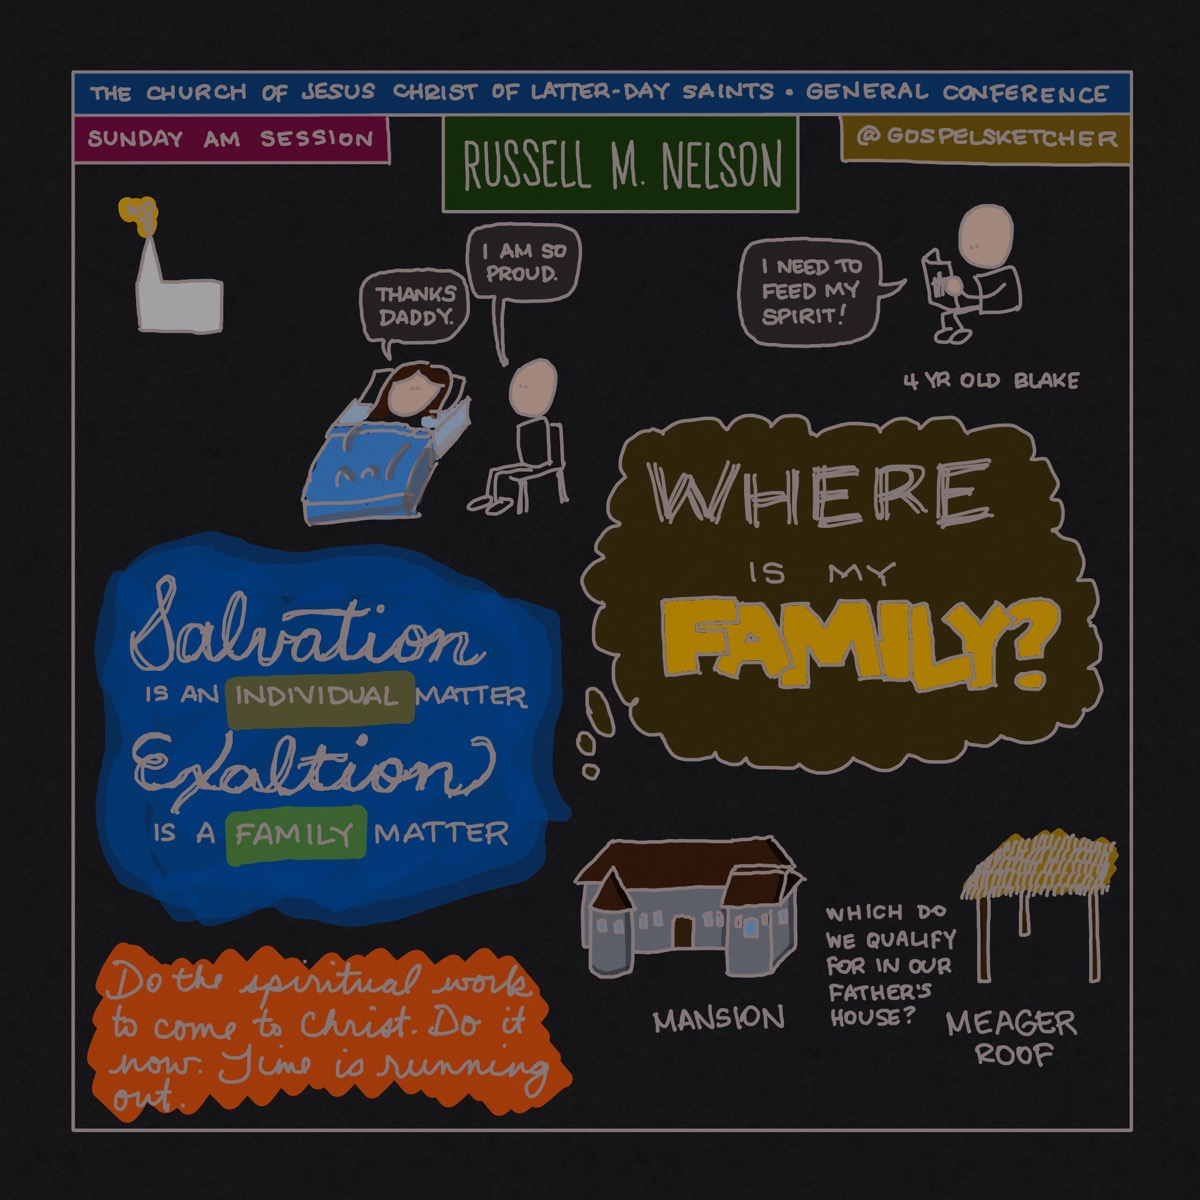 THE CHURCH OF JESUS CHRIST OF LATTER-DAY SAINTS • GENERAL CONFERENCE
SUNDAY AM SESSION
RUSSELL M. NELSON
@GOSPELSKETCHER
I AM SO
PROUD.
THANKS
DADDY.
I NEED TO
FEED MY
SPIRIT!
4 YR OLD BLAKE
WHERE
IS MY
FAMILY?
Salvation
IS AN INDIVIDUAL MATTER
Exaltion
IS A FAMILY MATTER
MANSION
WHICH DO
WE QUALIFY
FOR IN OUR
FATHER'S
HOUSE?
MEAGER
ROOF
Do the spiritual work
to come to Christ. Do it
now. Time is running
out.